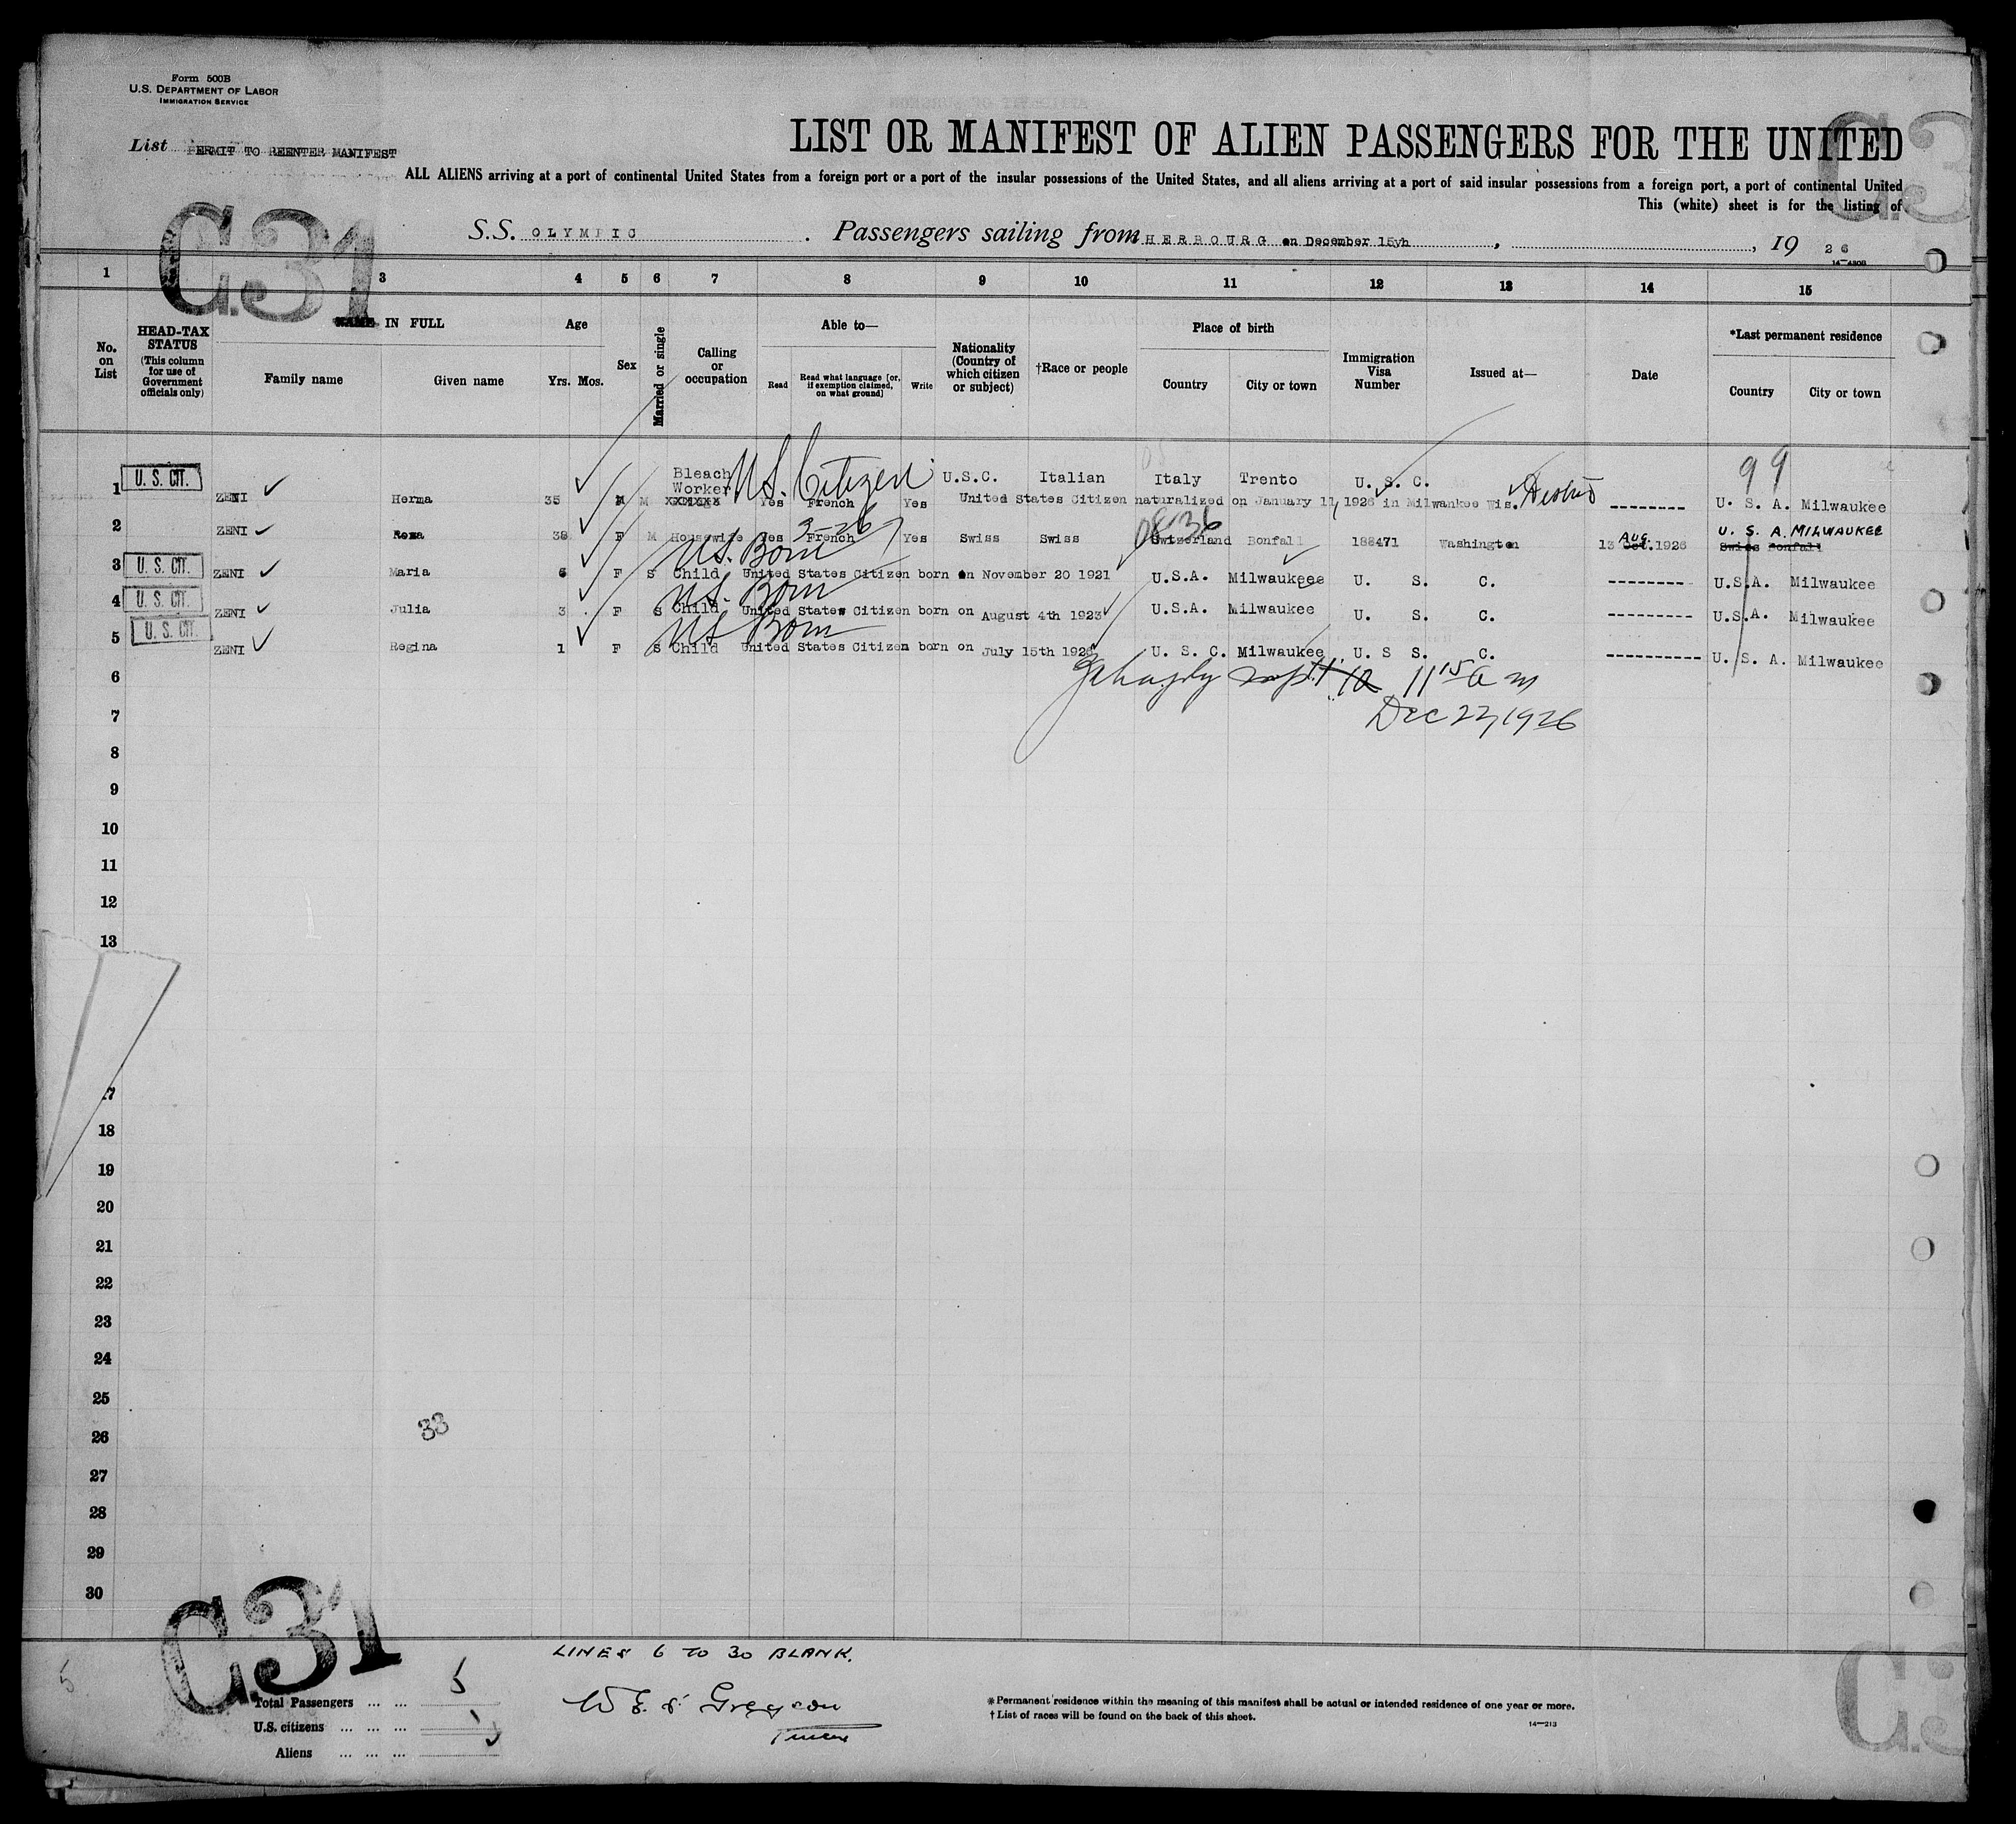 Form 500B
U.S. DEPARTMENT OF LABOR
IMMIGRATION SERVICE
List PERMIT TO REENTER MANIFEST
LIST OR MANIFEST OF ALIEN PASSENGERS FOR THE UNITED
ALL ALIENS arriving at a port of continental United States from a foreign port or a port of the insular possessions of the United States, and all aliens arriving at a port of said insular possessions from a foreign port, a port of continental United
This (white) sheet is for the listing of
C.31
C.3
S.S. OLYMPIC. Passengers sailing from HERBOURG on December 15yh, , 19 26
14—430B
1 3 4 5 6 7 8 9 10 11 12 13 14 15
No. on List
HEAD-TAX STATUS (This column for use of Government officials only)
NAME IN FULL
Family name Given name
Age
Yrs. Mos.
Sex
Married or single
Calling or occupation
Able to—
Read Read what language [or, if exemption claimed, on what ground] Write
Nationality (Country of which citizen or subject)
†Race or people
Place of birth
Country City or town
Immigration Visa Number
Issued at—
Date
*Last permanent residence
Country City or town
99
1 U. S. CIT. ZENI Herma 35 M M Bleach Worker Yes French Yes U.S.C. Italian Italy Trento U. S. C. -------- U. S. A. Milwaukee
U.S. Citizen
United States Citizen naturalized on January 11, 1926 in Milwankee Wis.
2 ZENI Rosa 38 F M Housewife Yes French Yes Swiss Swiss Switzerland Bonfall 188471 Washington 13 Oct. Aug. 1926 Swiss Bonfall U. S. A. MILWAUKEE
3 U. S. CIT. ZENI Maria 5 F S Child United States Citizen born on November 20 1921 U.S.A. Milwaukeee U. S. C. -------- U.S.A. Milwaukee
U.S. Born
4 U. S. CIT. ZENI Julia 3 F S Child United States Citizen born on August 4th 1923 U.S.A. Milwaukee U. S. C. -------- U.S.A. Milwaukee
U.S. Born
5 U. S. CIT. ZENI Regina 1 F S Child United States Citizen born on July 15th 1925 U. S. C. Milwaukee U. S S. C. ---------- U. S. A. Milwaukee
U.S. Born
6 11 15 a m
7 Dec 22, 1926
8
9
10
11
12
13
17
18
19
20
21
22
23
24
25
26
33
27
28
29
30
C.31
C.3
LINES 6 TO 30 BLANK.
5
Total Passengers ... ... 5
U.S. citizens ... ... ...
Aliens ... ... ...
*Permanent residence within the meaning of this manifest shall be actual or intended residence of one year or more.
†List of races will be found on the back of this sheet.
14—213